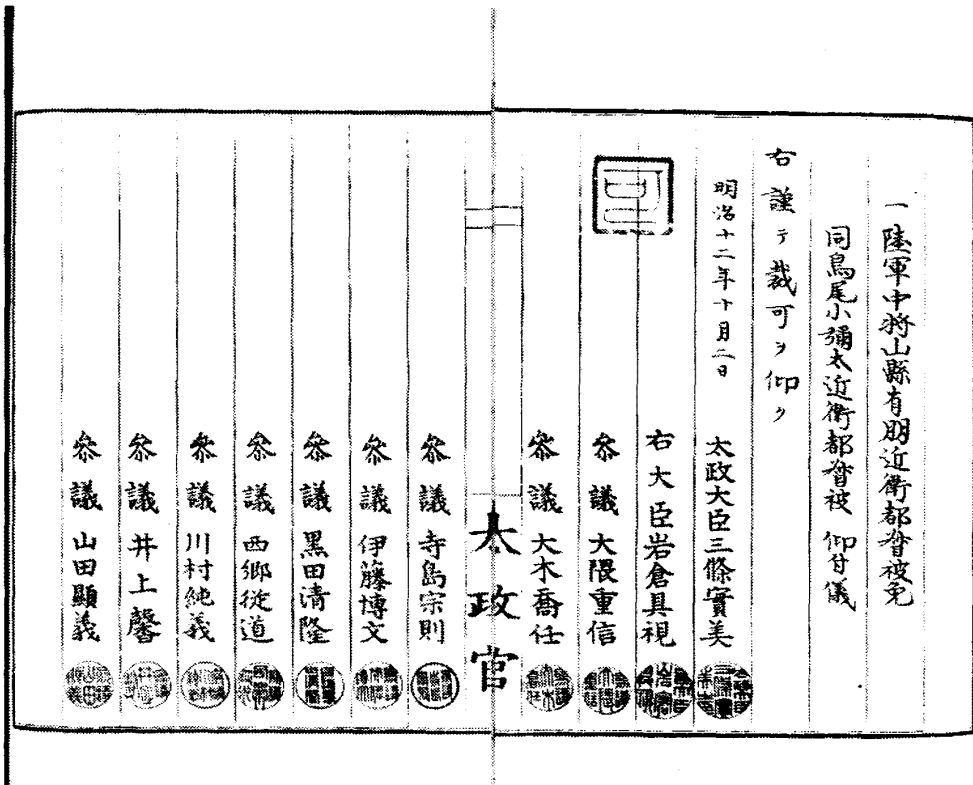 一陸軍中将山縣有朋近衛都督被免
同鳥尾小彌太近衛都督被 仰付儀
右謹テ裁可ヲ仰ク
明治十二年十月二日
可
太政大臣三條實美
右大臣岩倉具視
参議 大隈重信
参議 大木喬任
太政官
参議 寺島宗則
参議 伊藤博文
参議 黒田清隆
参議 西郷従道
参議 川村純義
参議 井上馨
参議 山田顯義